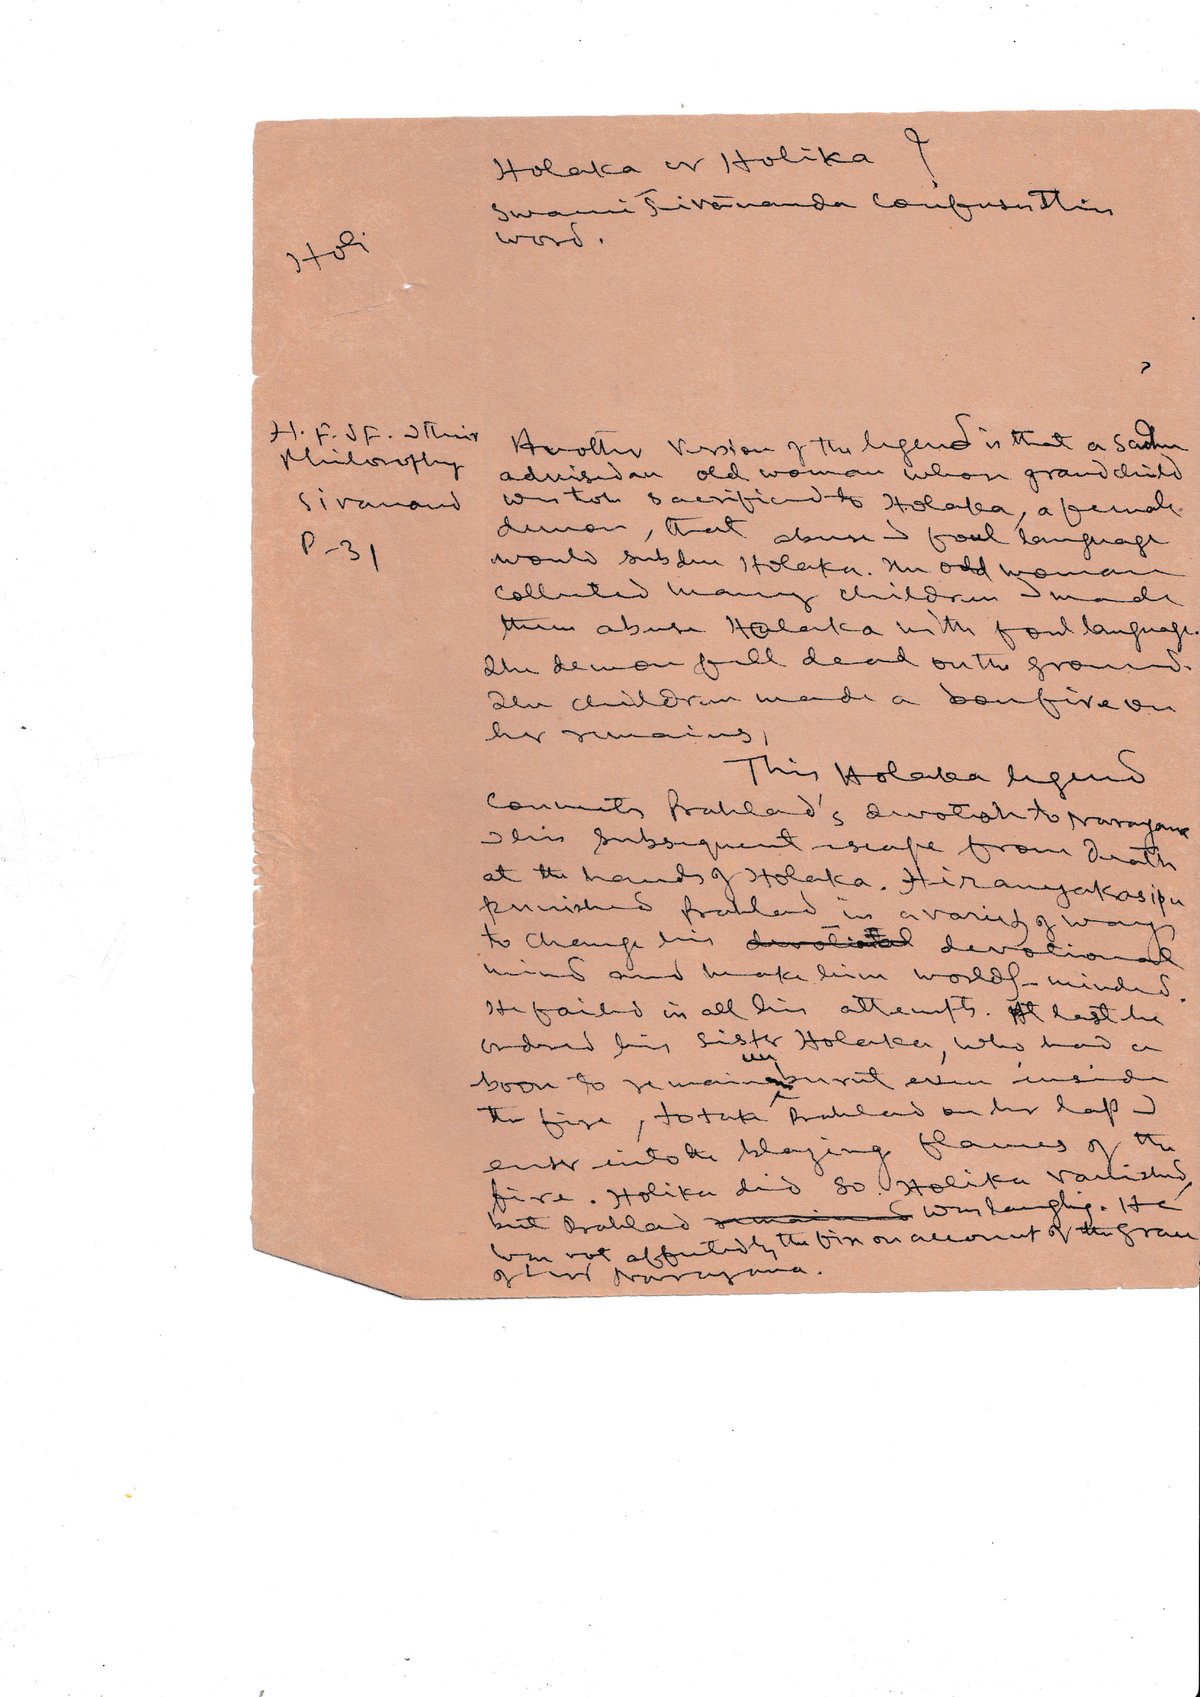 Holaka or Holika ?
Swami Śivānanda confuses this
word.
Holi
H. F. & F. & Their
Philosophy
Sivanand
P-31
Another version of the legend is that a Sadhu
advised an old woman whose grandchild
was to be sacrificed to Holaka, a female
demon, that abuse & foul language
would subdue Holaka. The old woman
collected many children & made
them abuse Holaka with foul language.
The demon fell dead on the ground.
The children made a bonfire on
her remains.
This Holaka legend
connects Prahlad's devotion to Narayana
& his subsequent escape from Death
at the hands of Holaka. Hiranyakasipu
punished Prahlad in a variety of ways
to change his devotional
mind and make him worldly-minded.
He failed in all his attempts. At last he
ordered his sister Holaka, who had a
boon to remain unburnt even inside
the fire, to take Prahlad on her lap &
enter into the blazing flames of the
fire. Holika did so. Holika vanished,
but Prahlad was laughing. He
was not affected by the fire on account of the Grace
of Lord Narayana.